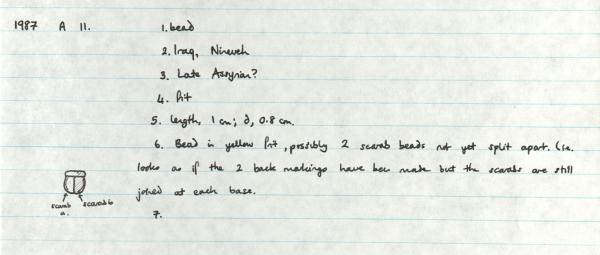 1987 A 11. 1. bead
2. Iraq, Nineveh
3. Late Assyrian?
4. frit
5. length, 1 cm; d, 0.8 cm.
6. Bead in yellow frit, possibly 2 scarab beads not yet split apart. (i.e.
looks as if the 2 back markings have been made but the scarabs are still
joined at each base.
scarab a. scarab b
7.